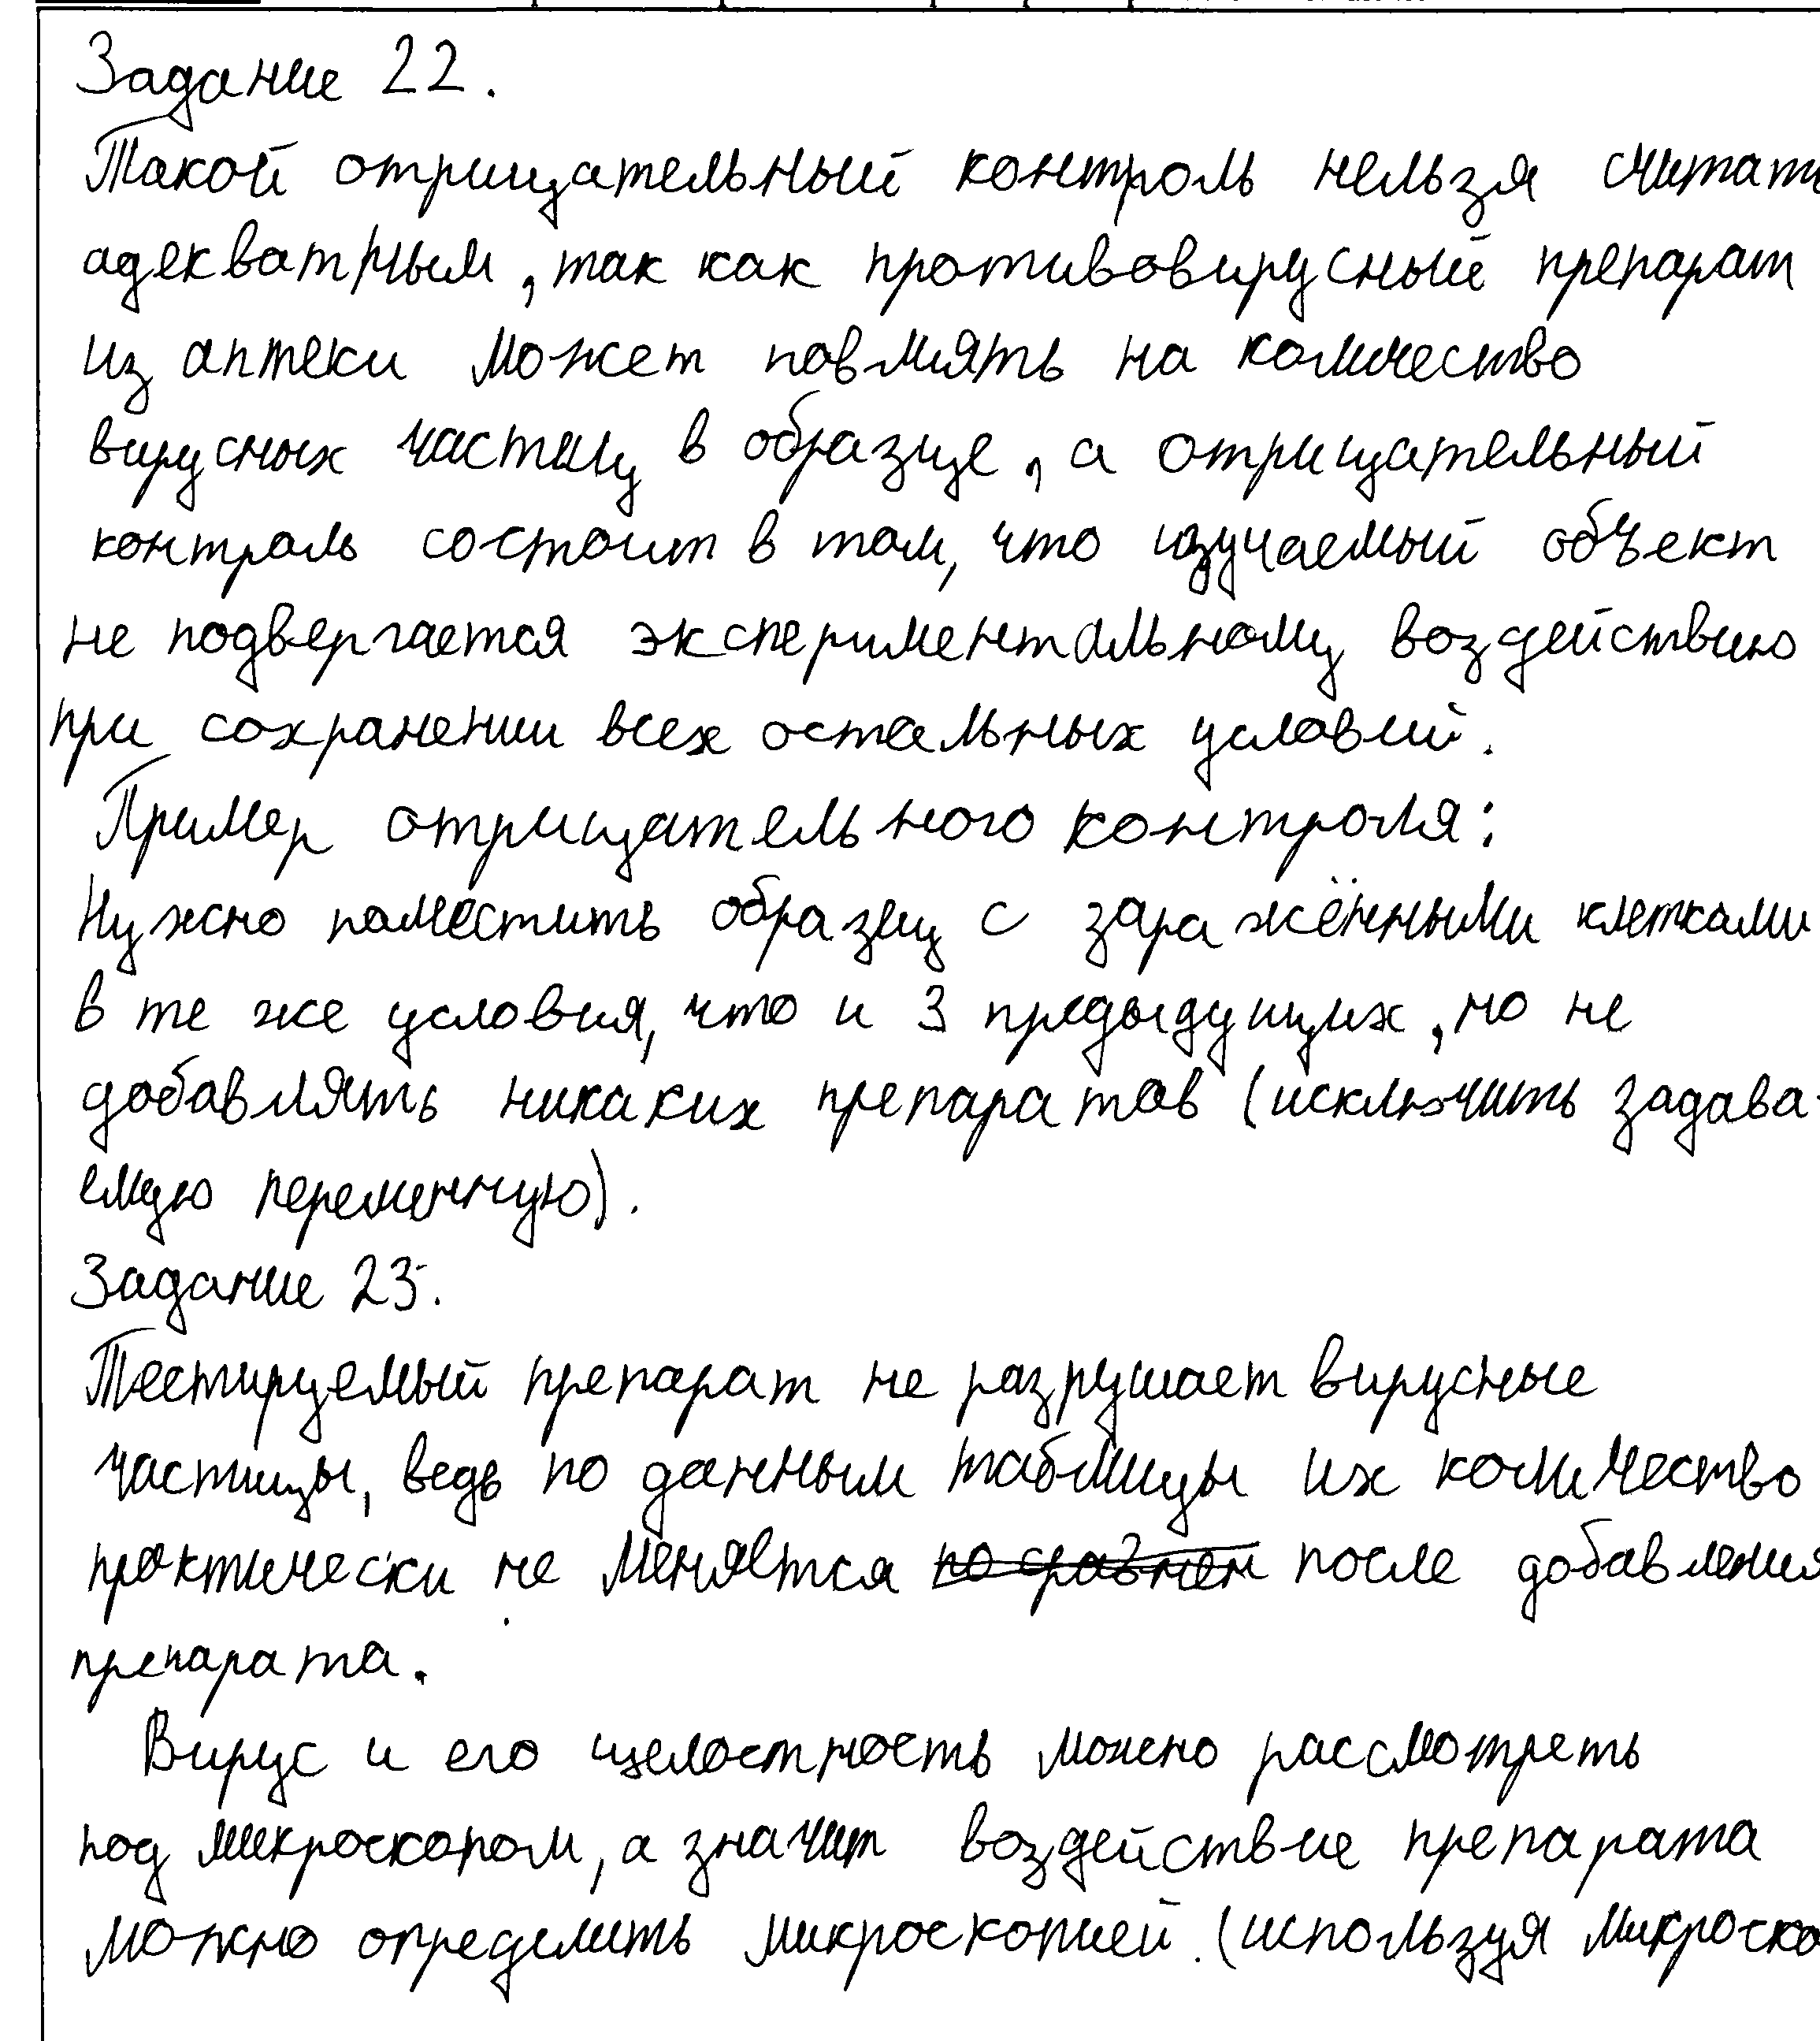 Задание 22.
Такой отрицательный контроль нельзя считать
адекватным, так как противовирусный препарат
из аптеки может повлиять на количество
вирусных частиц в образце, а отрицательный
контроль состоит в том, что изучаемый объект
не подвергается экспериментальному воздействию
при сохранении всех остальных условий.
Пример отрицательного контроля:
Нужно поместить образец с заражёнными клетками
в те же условия, что и 3 предыдущих, но не
добавлять никаких препаратов (исключить задава-
емую переменную).
Задание 23.
Тестируемый препарат не разрушает вирусные
частицы, ведь по данным таблицы их количество
практически не меняется по сравнен после добавления
препарата.
Вирус и его целостность можно рассмотреть
под микроскопом, а значит воздействие препарата
можно определить микроскопией. (используя микроско